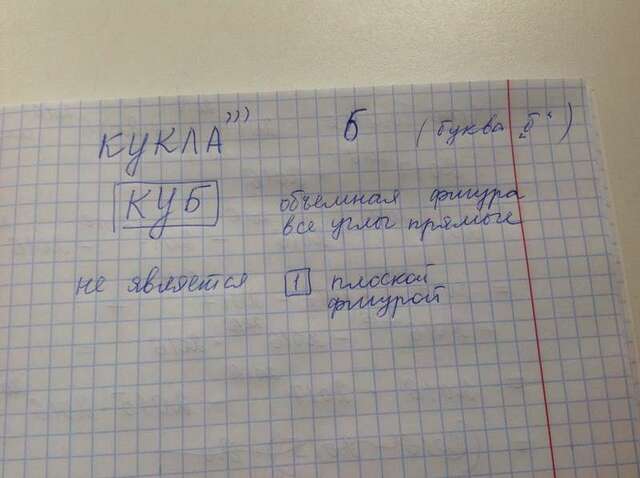 КУКЛА ))) Б (буква „Б“)
КУБ объемная фигура
все углы прямые
не является 1 плоской
фигурой